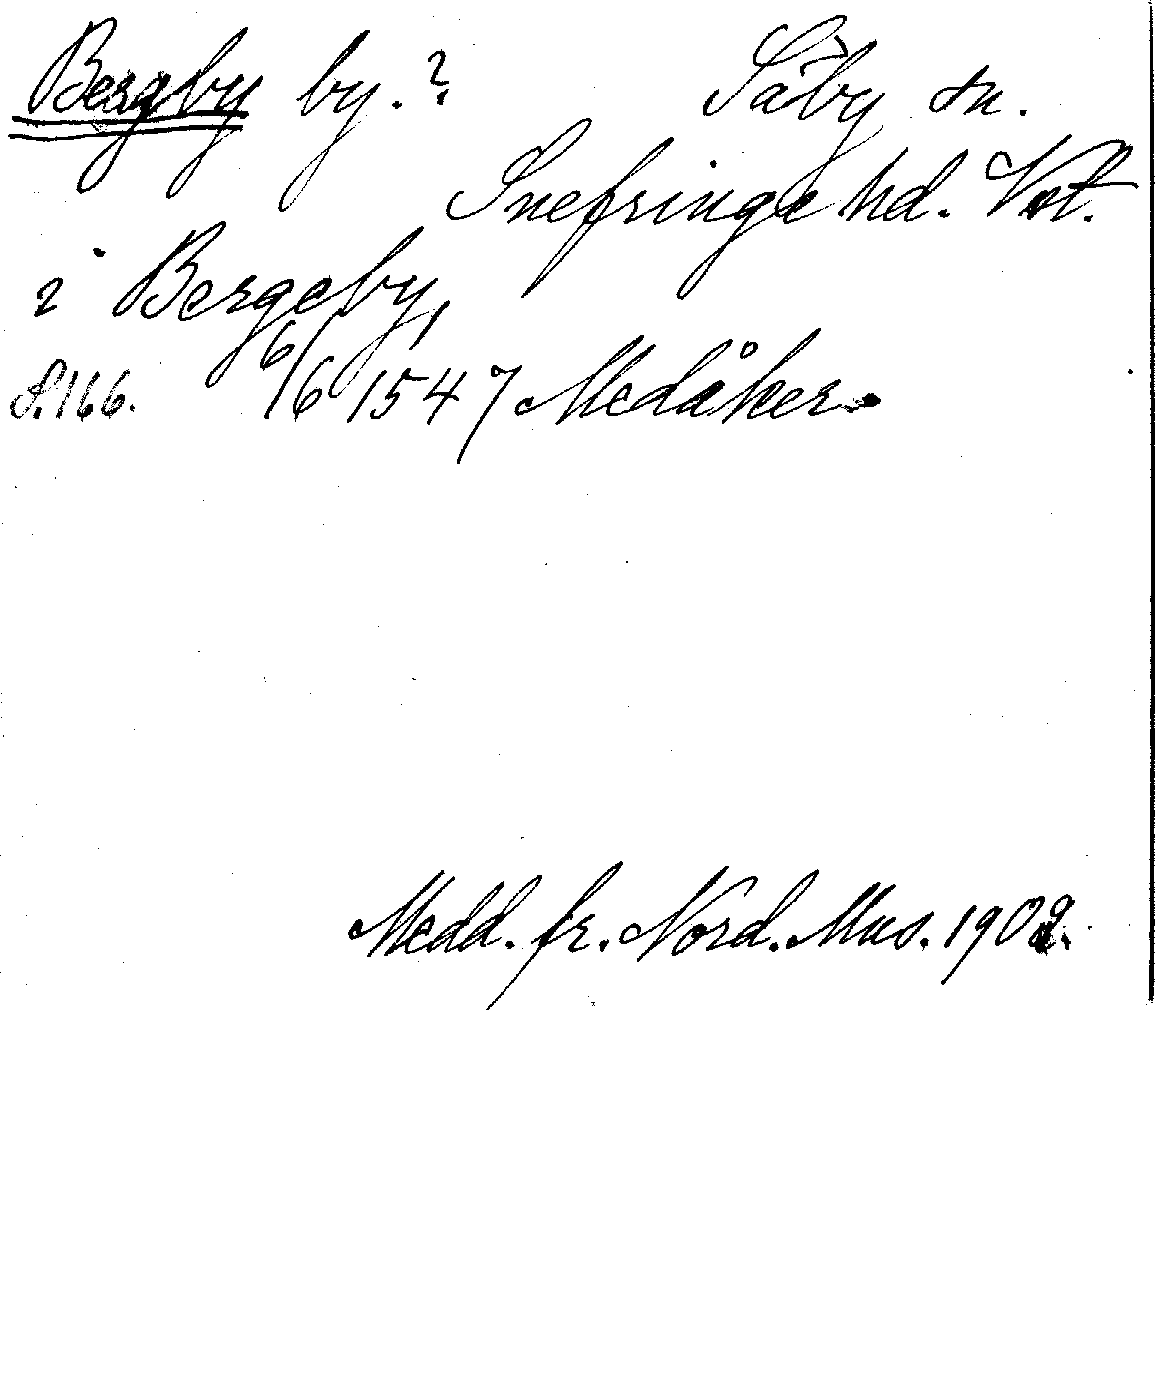 Bergby by.? Säby sn.
Snefringe hd. Vstm.
i Bergeby,
s.166. 6/6 1547 Medåker
Medd. fr. Nord. Mus. 1902.